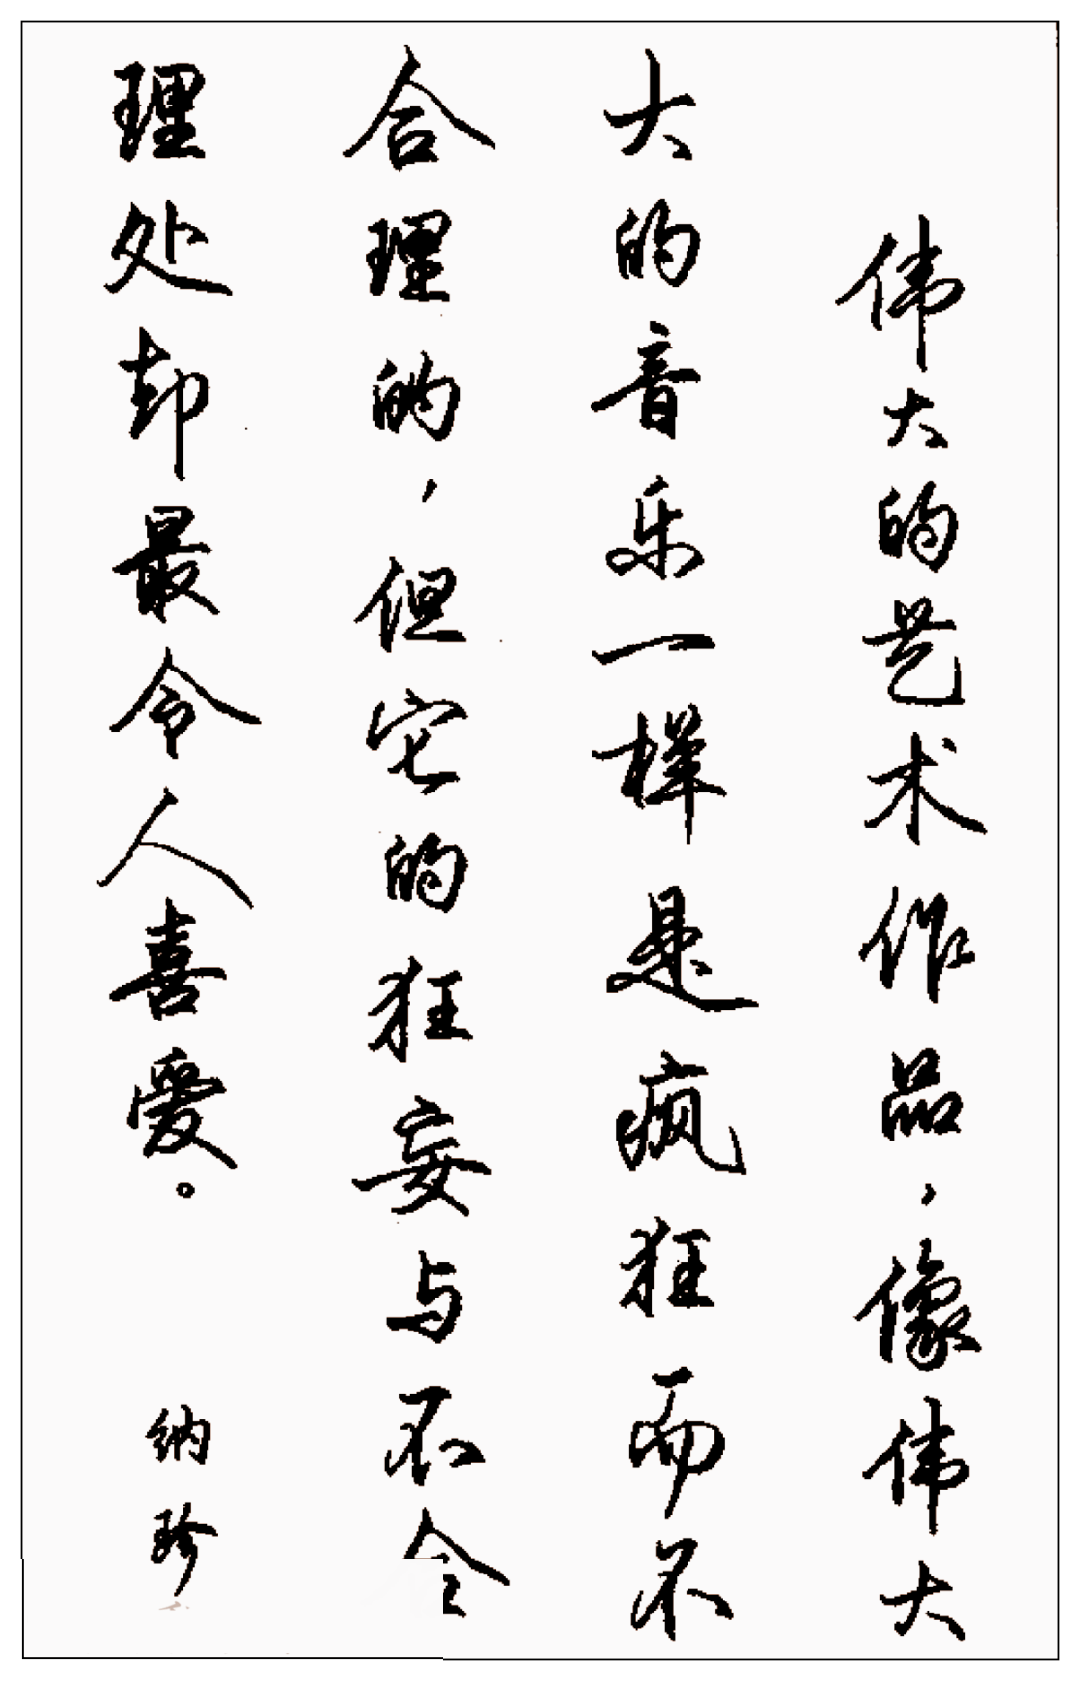 伟大的艺术作品，像伟大
大的音乐一样是疯狂而不
合理的，但它的狂妄与不合
理处却最令人喜爱。
纳珍